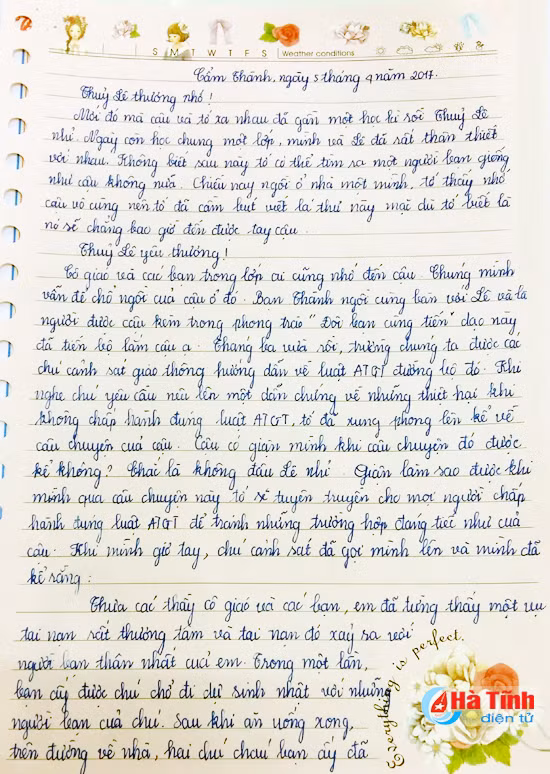 S M T W T F S Weather conditions
Cẩm Thành, ngày 5 tháng 4 năm 2017.
Thuỷ Lê thương nhớ!
Mới đó mà cậu và tớ xa nhau đã gần một học kì rồi Thuỷ Lê
nhỉ. Ngày còn học chung một lớp, mình và Lê đã rất thân thiết
với nhau. Không biết sau này tớ có thể tìm ra một người bạn giống
như cậu không nữa. Chiều nay ngồi ở nhà một mình, tớ thấy nhớ
cậu vô cùng nên tớ đã cầm bút viết lá thư này mặc dù tớ biết là
nó sẽ chẳng bao giờ đến được tay cậu.
Thuỷ Lê yêu thương!
Cô giáo và các bạn trong lớp ai cũng nhớ đến cậu. Chúng mình
vẫn để chỗ ngồi của cậu ở đó. Bạn Thành ngồi cùng bàn với Lê và là
người được cậu kèm trong phong trào "Đôi bạn cùng tiến" dạo này
đã tiến bộ lắm cậu ạ. Tháng ba vừa rồi, trường chúng ta được các
chú cảnh sát giao thông hướng dẫn về luật ATGT đường bộ đó. Khi
nghe chú yêu cầu nêu lên một dẫn chứng về những thiệt hại khi
không chấp hành đúng luật ATGT, tớ đã xung phong lên kể về
câu chuyện của cậu. Cậu có giận mình khi câu chuyện đó được
kể không? Chắc là không đâu Lê nhỉ. Giận làm sao được khi
mình qua câu chuyện này tớ sẽ tuyên truyền cho mọi người chấp
hành đúng luật ATGT để tránh những trường hợp đáng tiếc như của
cậu. Khi mình giơ tay, chú cảnh sát đã gọi mình lên và mình đã
kể rằng:
Thưa các thầy cô giáo và các bạn, em đã từng thấy một vụ
tai nạn rất thương tâm và tai nạn đó xảy ra với
người bạn thân nhất của em. Trong một lần,
bạn ấy được chú chở đi dự sinh nhật với những
người bạn của chú. Sau khi ăn uống xong,
trên đường về nhà, hai chú cháu bạn ấy đã
Everything is perfect.
Hà Tĩnh
điện tử